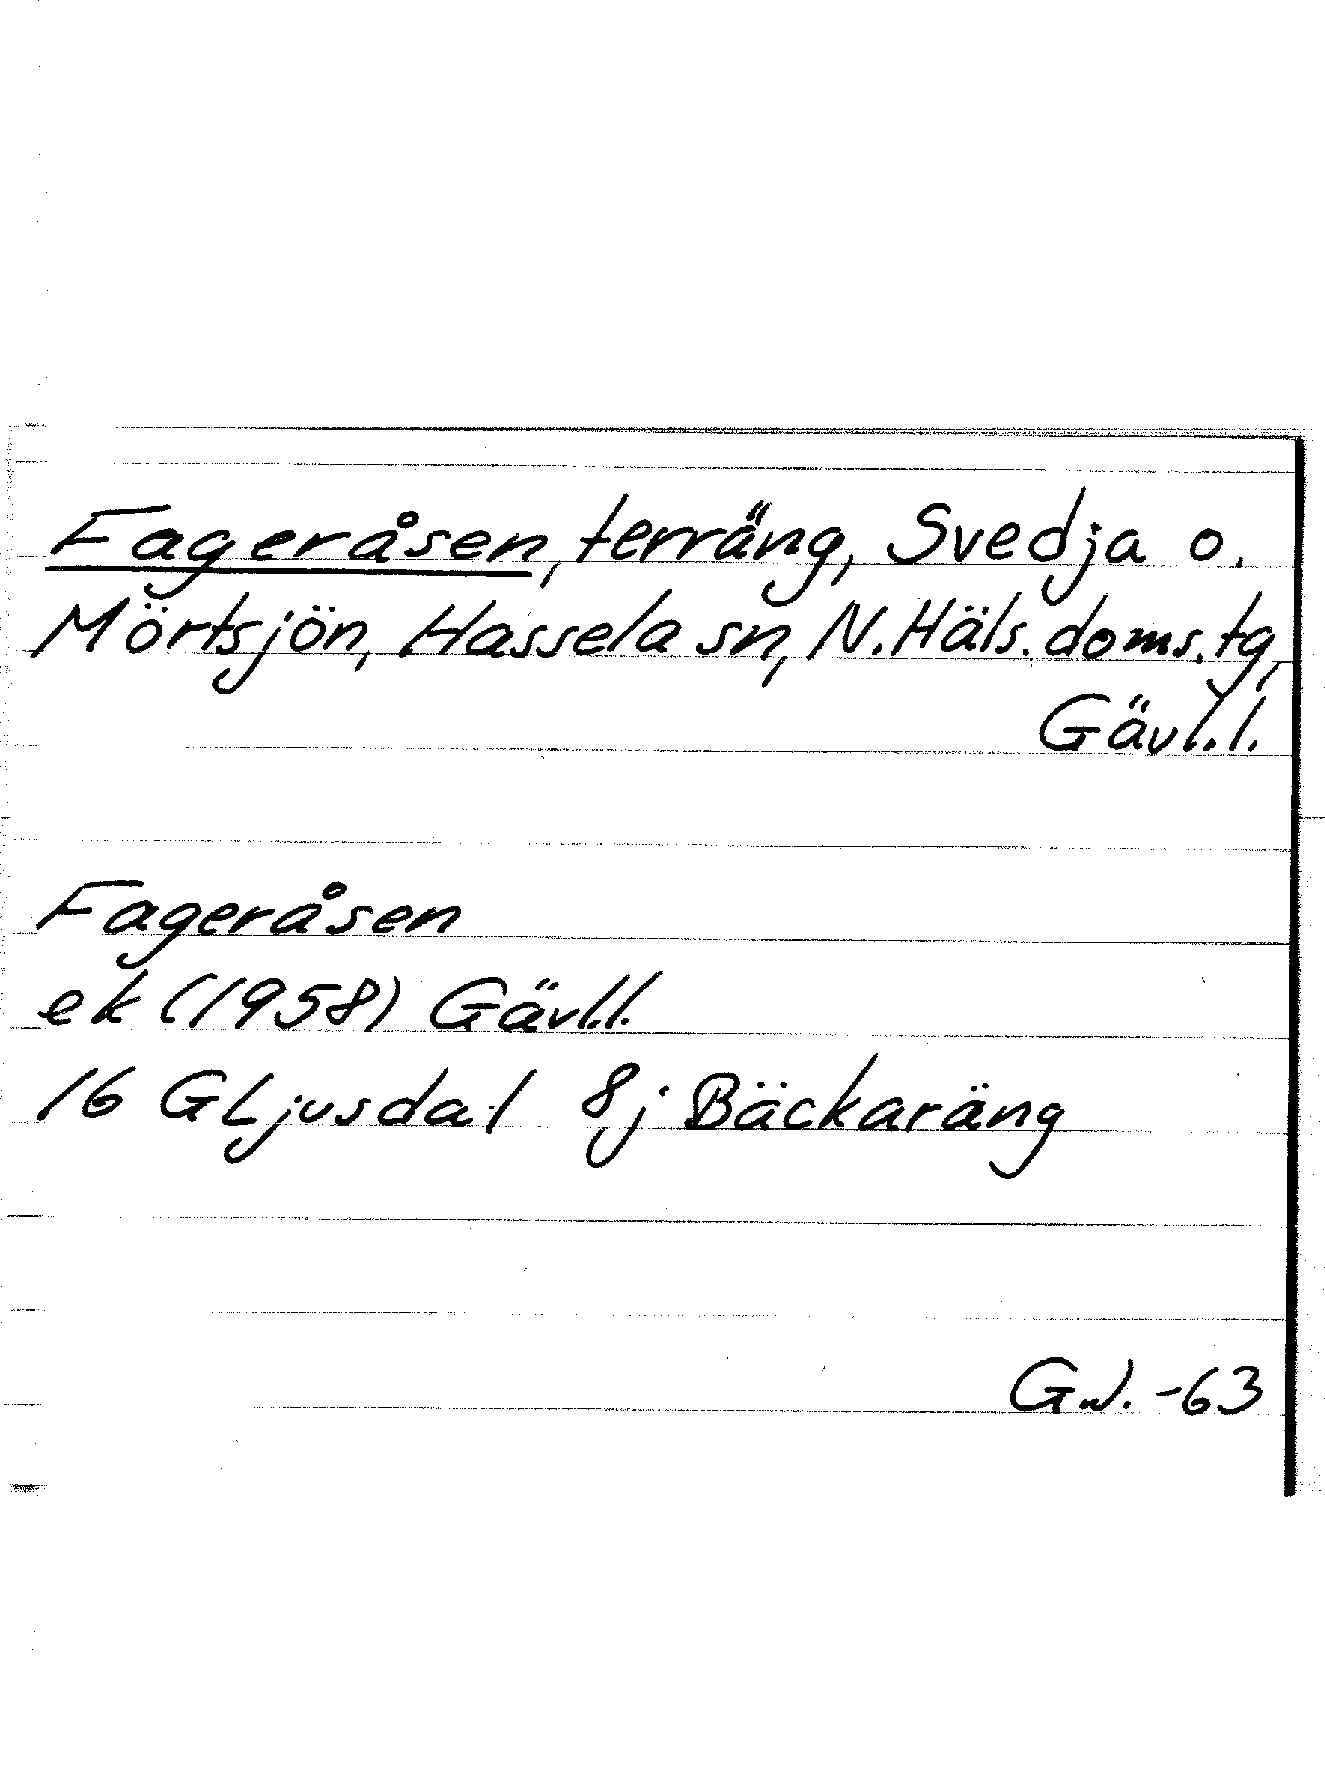 Fageråsen, terräng, Svedja o.
Mörtsjön, Hassela sn, N. Häls. doms. tg,
Gävl. l.
Fageråsen
ek (1958) Gävl.l.
16 G Ljusdal 8j Bäckaräng
G.J. -63